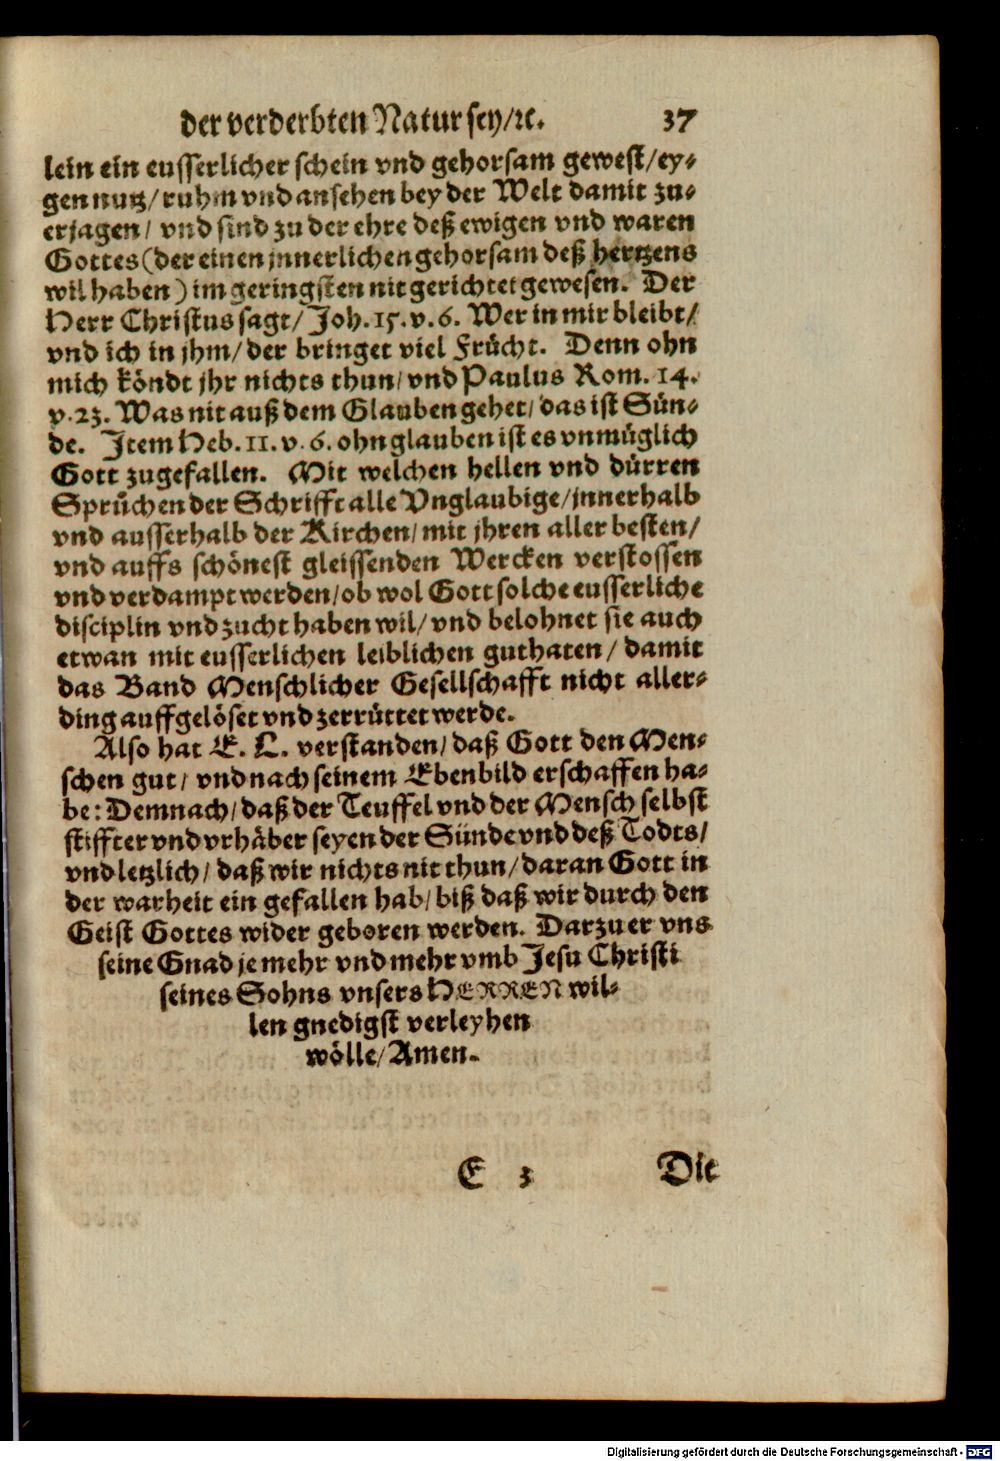 der verderbten Natur sey/ꝛc. 37
lein ein eusserlicher schein vnd gehorsam gewest/ey-
gen nutz/ruhm vnd ansehen bey der Welt damit zu-
erjagen/ vnd sind zu der ehre deß ewigen vnd waren
Gottes (der einen jnnerlichen gehorsam deß hertzens
wil haben) im geringsten nit gerichtet gewesen. Der
Herr Christus sagt/ Joh. 15. v. 6. Wer in mir bleibt/
vnd ich in jhm/ der bringet viel Frücht. Denn ohn
mich köndt jhr nichts thun/ vnd Paulus Rom. 14.
v. 23. Was nit auß dem Glauben gehet/ das ist Sün-
de. Item Heb. 11. v. 6. ohn glauben ist es vnmüglich
Gott zugefallen. Mit welchen hellen vnd dürren
Sprüchen der Schrifft alle Vnglaubige/jnnerhalb
vnd ausserhalb der Kirchen/ mit jhren aller besten/
vnd auffs schönest gleissenden Wercken verstossen
vnd verdampt werden/ob wol Gott solche eusserliche
disciplin vnd zucht haben wil/ vnd belohnet sie auch
etwan mit eusserlichen leiblichen guthaten/ damit
das Band Menschlicher Gesellschafft nicht aller-
ding auffgelöset vnd zerrüttet werde.
Also hat E. L. verstanden/ daß Gott den Men-
schen gut/ vnd nach seinem Ebenbild erschaffen ha-
be: Demnach/ daß der Teuffel vnd der Mensch selbst
stiffter vnd vrhäber seyen der Sünde vnd deß Todts/
vnd letzlich/ daß wir nichts nit thun/ daran Gott in
der warheit ein gefallen hab/ biß daß wir durch den
Geist Gottes wider geboren werden. Darzu er vns
seine Gnad je mehr vnd mehr vmb Jesu Christi
seines Sohns vnsers HERREN wil-
len gnedigst verleyhen
wölle/ Amen.
E 3 Die
Digitalisierung gefördert durch die Deutsche Forschungsgemeinschaft - DFG